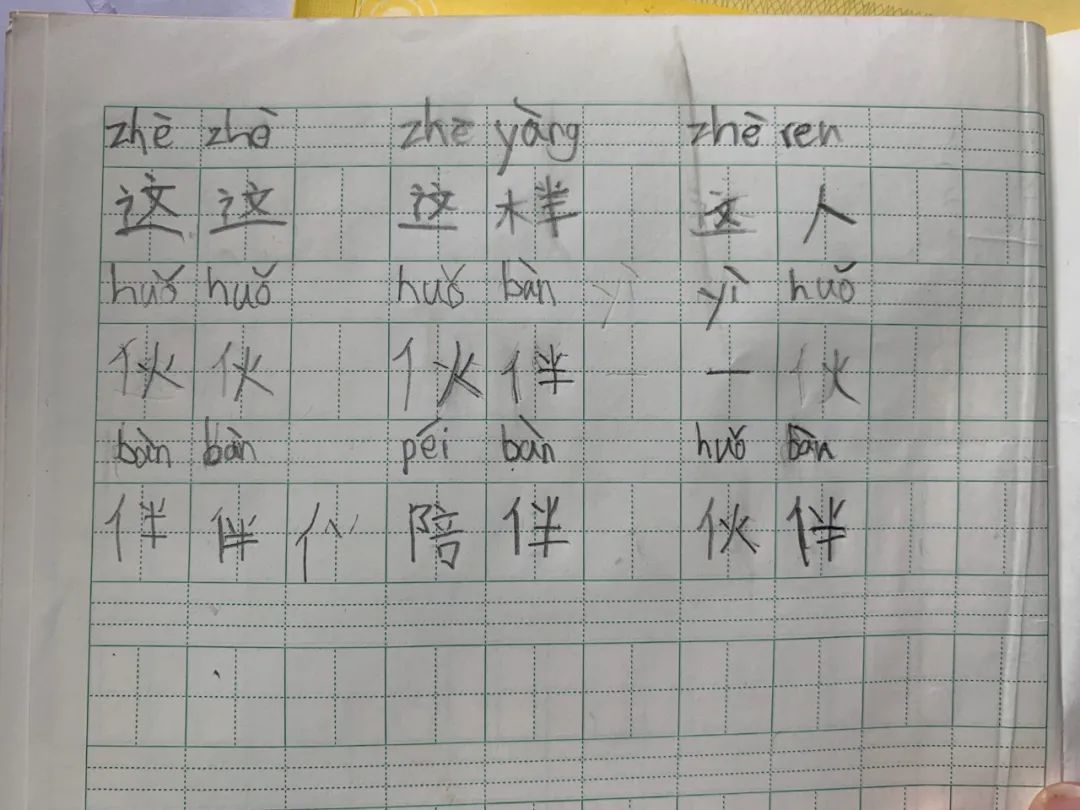 zhè zhè zhè yàng zhè ren
这 这 这 样 这 人
huǒ huǒ huǒ bàn yì yì huǒ
伙 伙 伙 伴 一 一 伙
bàn bàn péi bàn huǒ bàn
伴 伴 陪 伴 伙 伴